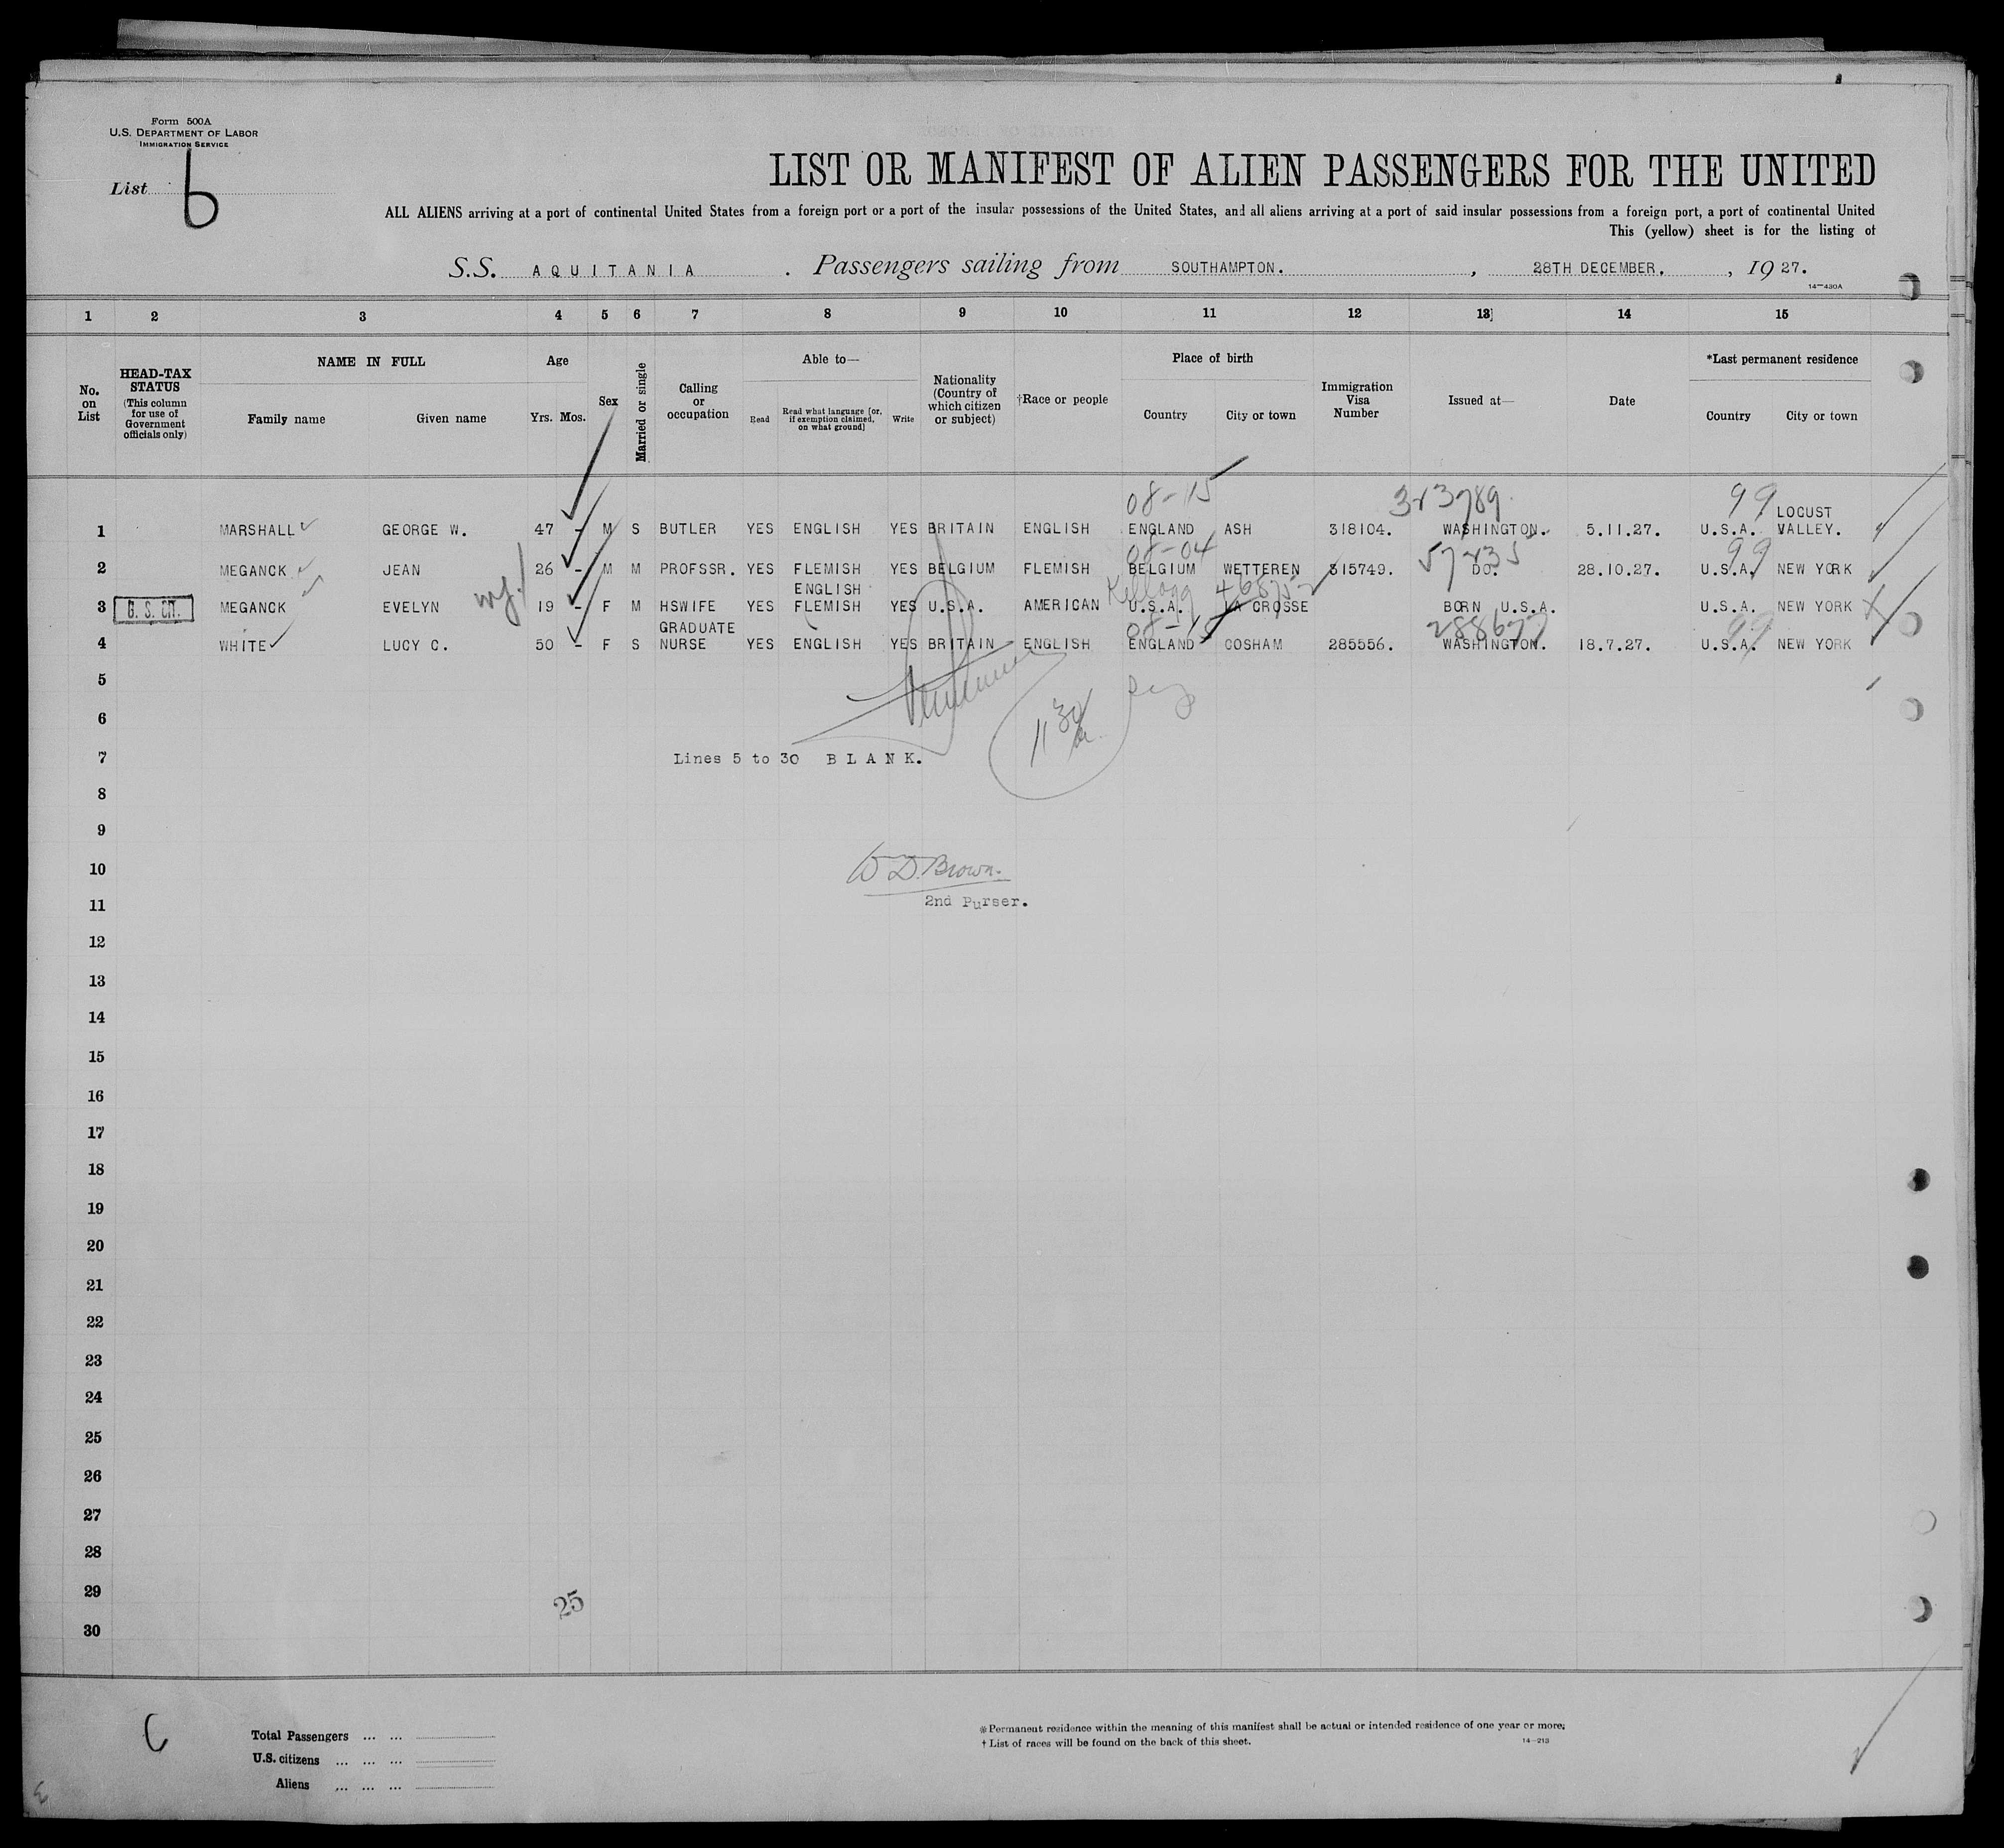 Form 500A
U.S. DEPARTMENT OF LABOR
IMMIGRATION SERVICE
List 6
LIST OR MANIFEST OF ALIEN PASSENGERS FOR THE UNITED
ALL ALIENS arriving at a port of continental United States from a foreign port or a port of the insular possessions of the United States, and all aliens arriving at a port of said insular possessions from a foreign port, a port of continental United
This (yellow) sheet is for the listing of
S.S. AQUITANIA . Passengers sailing from SOUTHAMPTON. , 28TH DECEMBER. , 1927.
14-430A
1 2 3 4 5 6 7 8 9 10 11 12 13 14 15
No. on List
HEAD-TAX STATUS (This column for use of Government officials only)
NAME IN FULL
Family name Given name
Age
Yrs. Mos.
Sex
Married or single
Calling or occupation
Able to—
Read Read what language [or, if exemption claimed, on what ground] Write
Nationality (Country of which citizen or subject)
†Race or people
Place of birth
Country City or town
Immigration Visa Number
Issued at—
Date
*Last permanent residence
Country City or town
08-15 323789 99 LOCUST
1 MARSHALL GEORGE W. 47 - M S BUTLER YES ENGLISH YES BRITAIN ENGLISH ENGLAND ASH 318104. WASHINGTON. 5.11.27. U.S.A. VALLEY.
08-04 99
2 MEGANCK JEAN 26 - M M PROFSSR. YES FLEMISH YES BELGIUM FLEMISH BELGIUM WETTEREN 315749. DO. 28.10.27. U.S.A. NEW YORK
ENGLISH Kellogg
3 U. S. CIT. MEGANCK EVELYN 19 - F M HSWIFE YES FLEMISH YES U.S.A. AMERICAN U.S.A. LA CROSSE BORN U.S.A. U.S.A. NEW YORK
GRADUATE 08-15 288677 99
4 WHITE LUCY C. 50 - F S NURSE YES ENGLISH YES BRITAIN ENGLISH ENGLAND COSHAM 285556. WASHINGTON. 18.7.27. U.S.A. NEW YORK
5
6
11 30
7 Lines 5 to 30 BLANK.
8
9
10 W D. Brown.
11 2nd Purser.
12
13
14
15
16
17
18
19
20
21
22
23
24
25
26
27
28
29
25
30
Total Passengers ... ...
U.S. citizens ... ... ...
Aliens ... ... ...
*Permanent residence within the meaning of this manifest shall be actual or intended residence of one year or more.
† List of races will be found on the back of this sheet.
14-213